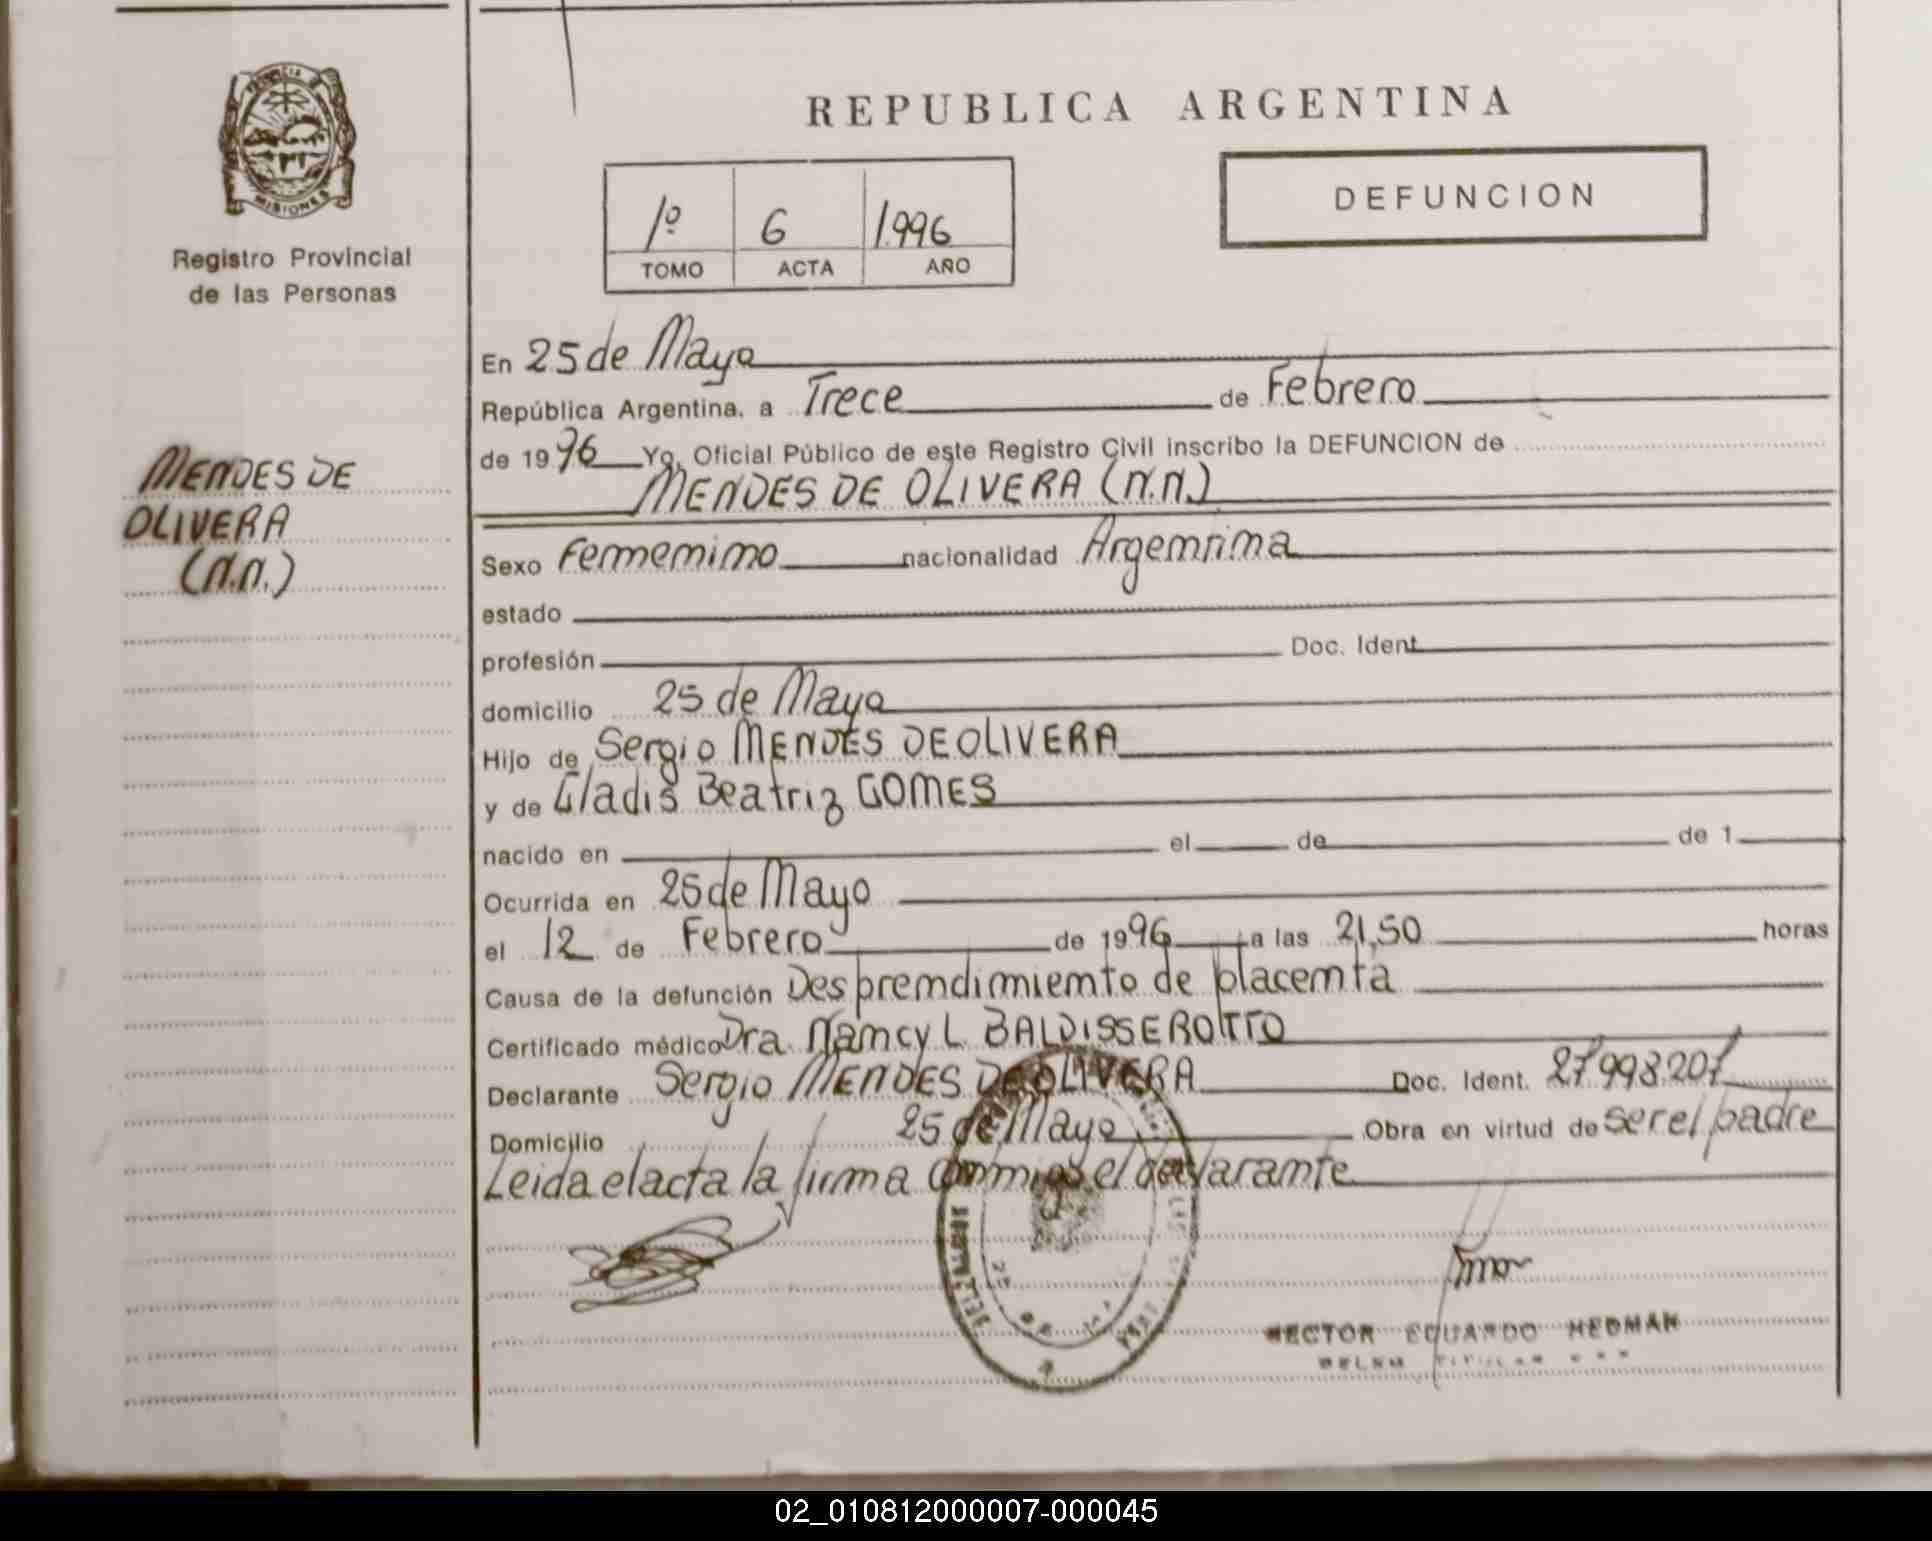 PROVINCIA DE
MISIONES
Registro Provincial
de las Personas
MENDES DE
OLIVERA
(N.N.)
REPUBLICA ARGENTINA
1º 6 1996
TOMO ACTA AÑO
DEFUNCION
En 25 de Mayo
República Argentina, a Trece de Febrero
de 1996 Yo, Oficial Público de este Registro Civil inscribo la DEFUNCION de
MENDES DE OLIVERA (N.N.)
Sexo Femenino nacionalidad Argentina
estado
profesión Doc. Ident.
domicilio 25 de Mayo
Hijo de Sergio MENDES DE OLIVERA
y de Gladis Beatriz GOMES
nacido en el de de 1
Ocurrida en 25 de Mayo
el 12 de Febrero de 1996 a las 21,50 horas
Causa de la defunción Desprendimiento de placenta
Certificado médico Dra. Nancy L. BALDISSEROTTO
Declarante Sergio MENDES DE OLIVERA Doc. Ident. 27.998.207
Domicilio 25 de Mayo Obra en virtud de ser el padre
Leida el acta la firma conmigo el declarante
HECTOR EDUARDO HEDMAN
02_010812000007-000045